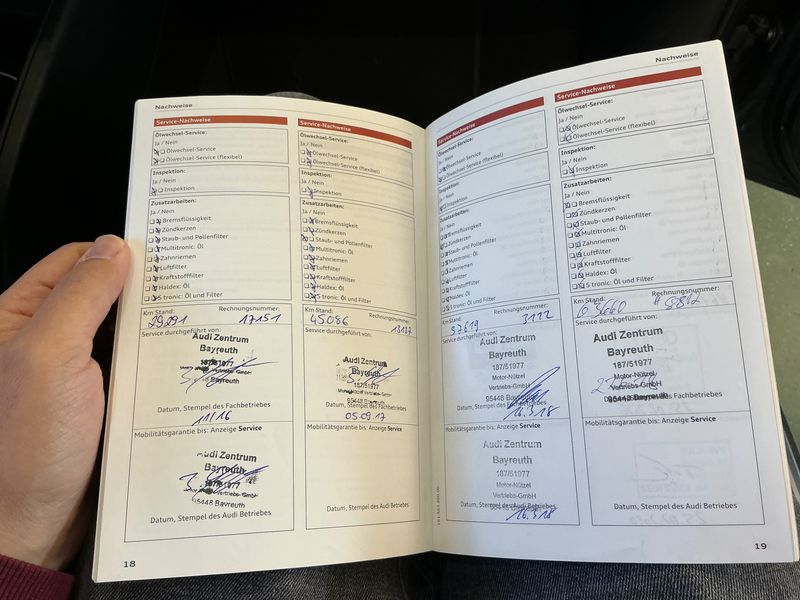 Nachweise
Service-Nachweise
Ölwechsel-Service:
Ja / Nein
Ölwechsel-Service
Ölwechsel-Service (flexibel)
Inspektion:
Ja / Nein
Inspektion
Zusatzarbeiten:
Ja / Nein
Bremsflüssigkeit
Zündkerzen
Staub- und Pollenfilter
Multitronic: Öl
Zahnriemen
Luftfilter
Kraftstofffilter
Haldex: Öl
S tronic: Öl und Filter
Km Stand: Rechnungsnummer:
29291 17151
Service durchgeführt von:
Audi Zentrum
Bayreuth
187/51977
Bayreuth
Datum, Stempel des Fachbetriebes
11/16
Mobilitätsgarantie bis: Anzeige Service
Audi Zentrum
Bayreuth
187/51977
Vertriebs-GmbH
95448 Bayreuth
Datum, Stempel des Audi Betriebes
18
Service-Nachweise
Ölwechsel-Service:
Ja / Nein
Ölwechsel-Service
Ölwechsel-Service (flexibel)
Inspektion:
Ja / Nein
Inspektion
Zusatzarbeiten:
Ja / Nein
Bremsflüssigkeit
Zündkerzen
Staub- und Pollenfilter
Multitronic: Öl
Zahnriemen
Luftfilter
Kraftstofffilter
Haldex: Öl
S tronic: Öl und Filter
Km Stand: Rechnungsnummer:
45086 13137
Service durchgeführt von:
Audi Zentrum
Bayreuth
187/51977
Motor-Nützel Vertriebs-GmbH
95448 Bayreuth
Datum, Stempel des Fachbetriebes
05.09.17
Mobilitätsgarantie bis: Anzeige Service
Datum, Stempel des Audi Betriebes
Service-Nachweise
Ölwechsel-Service:
Ja / Nein
Ölwechsel-Service
Ölwechsel-Service (flexibel)
Inspektion:
Ja / Nein
Inspektion
Zusatzarbeiten:
Ja / Nein
Bremsflüssigkeit
Zündkerzen
Staub- und Pollenfilter
Multitronic: Öl
Zahnriemen
Luftfilter
Kraftstofffilter
Haldex: Öl
S tronic: Öl und Filter
Km Stand: Rechnungsnummer:
57619 3112
Service durchgeführt von:
Audi Zentrum
Bayreuth
187/51977
Motor-Nützel
Vertriebs-GmbH
95448 Bayreuth
Datum, Stempel des Fachbetriebes
26.3.18
Mobilitätsgarantie bis: Anzeige Service
Audi Zentrum
Bayreuth
187/51977
Motor-Nützel
Vertriebs-GmbH
95448 Bayreuth
Datum, Stempel des Audi Betriebes
26.3.18
Nachweise
Service-Nachweise
Ölwechsel-Service:
Ja / Nein
Ölwechsel-Service
Ölwechsel-Service (flexibel)
Inspektion:
Ja / Nein
Inspektion
Zusatzarbeiten:
Ja / Nein
Bremsflüssigkeit
Zündkerzen
Staub- und Pollenfilter
Multitronic: Öl
Zahnriemen
Luftfilter
Kraftstofffilter
Haldex: Öl
S tronic: Öl und Filter
Km Stand: Rechnungsnummer:
Service durchgeführt von:
Audi Zentrum
Bayreuth
187/51977
Motor-Nützel
Vertriebs-GmbH
95448 Bayreuth
Datum, Stempel des Fachbetriebes
Mobilitätsgarantie bis: Anzeige Service
Datum, Stempel des Audi Betriebes
19